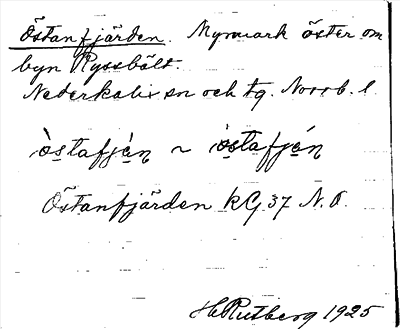 Östanfjärden. Myrmark öster om
byn Ryssbält.
Nederkalix sn och tg. Norrb. l
òstafjè̩n ~ òstafjé̩n
Östanfjärden kG 37 N.O.
H Rutberg 1925